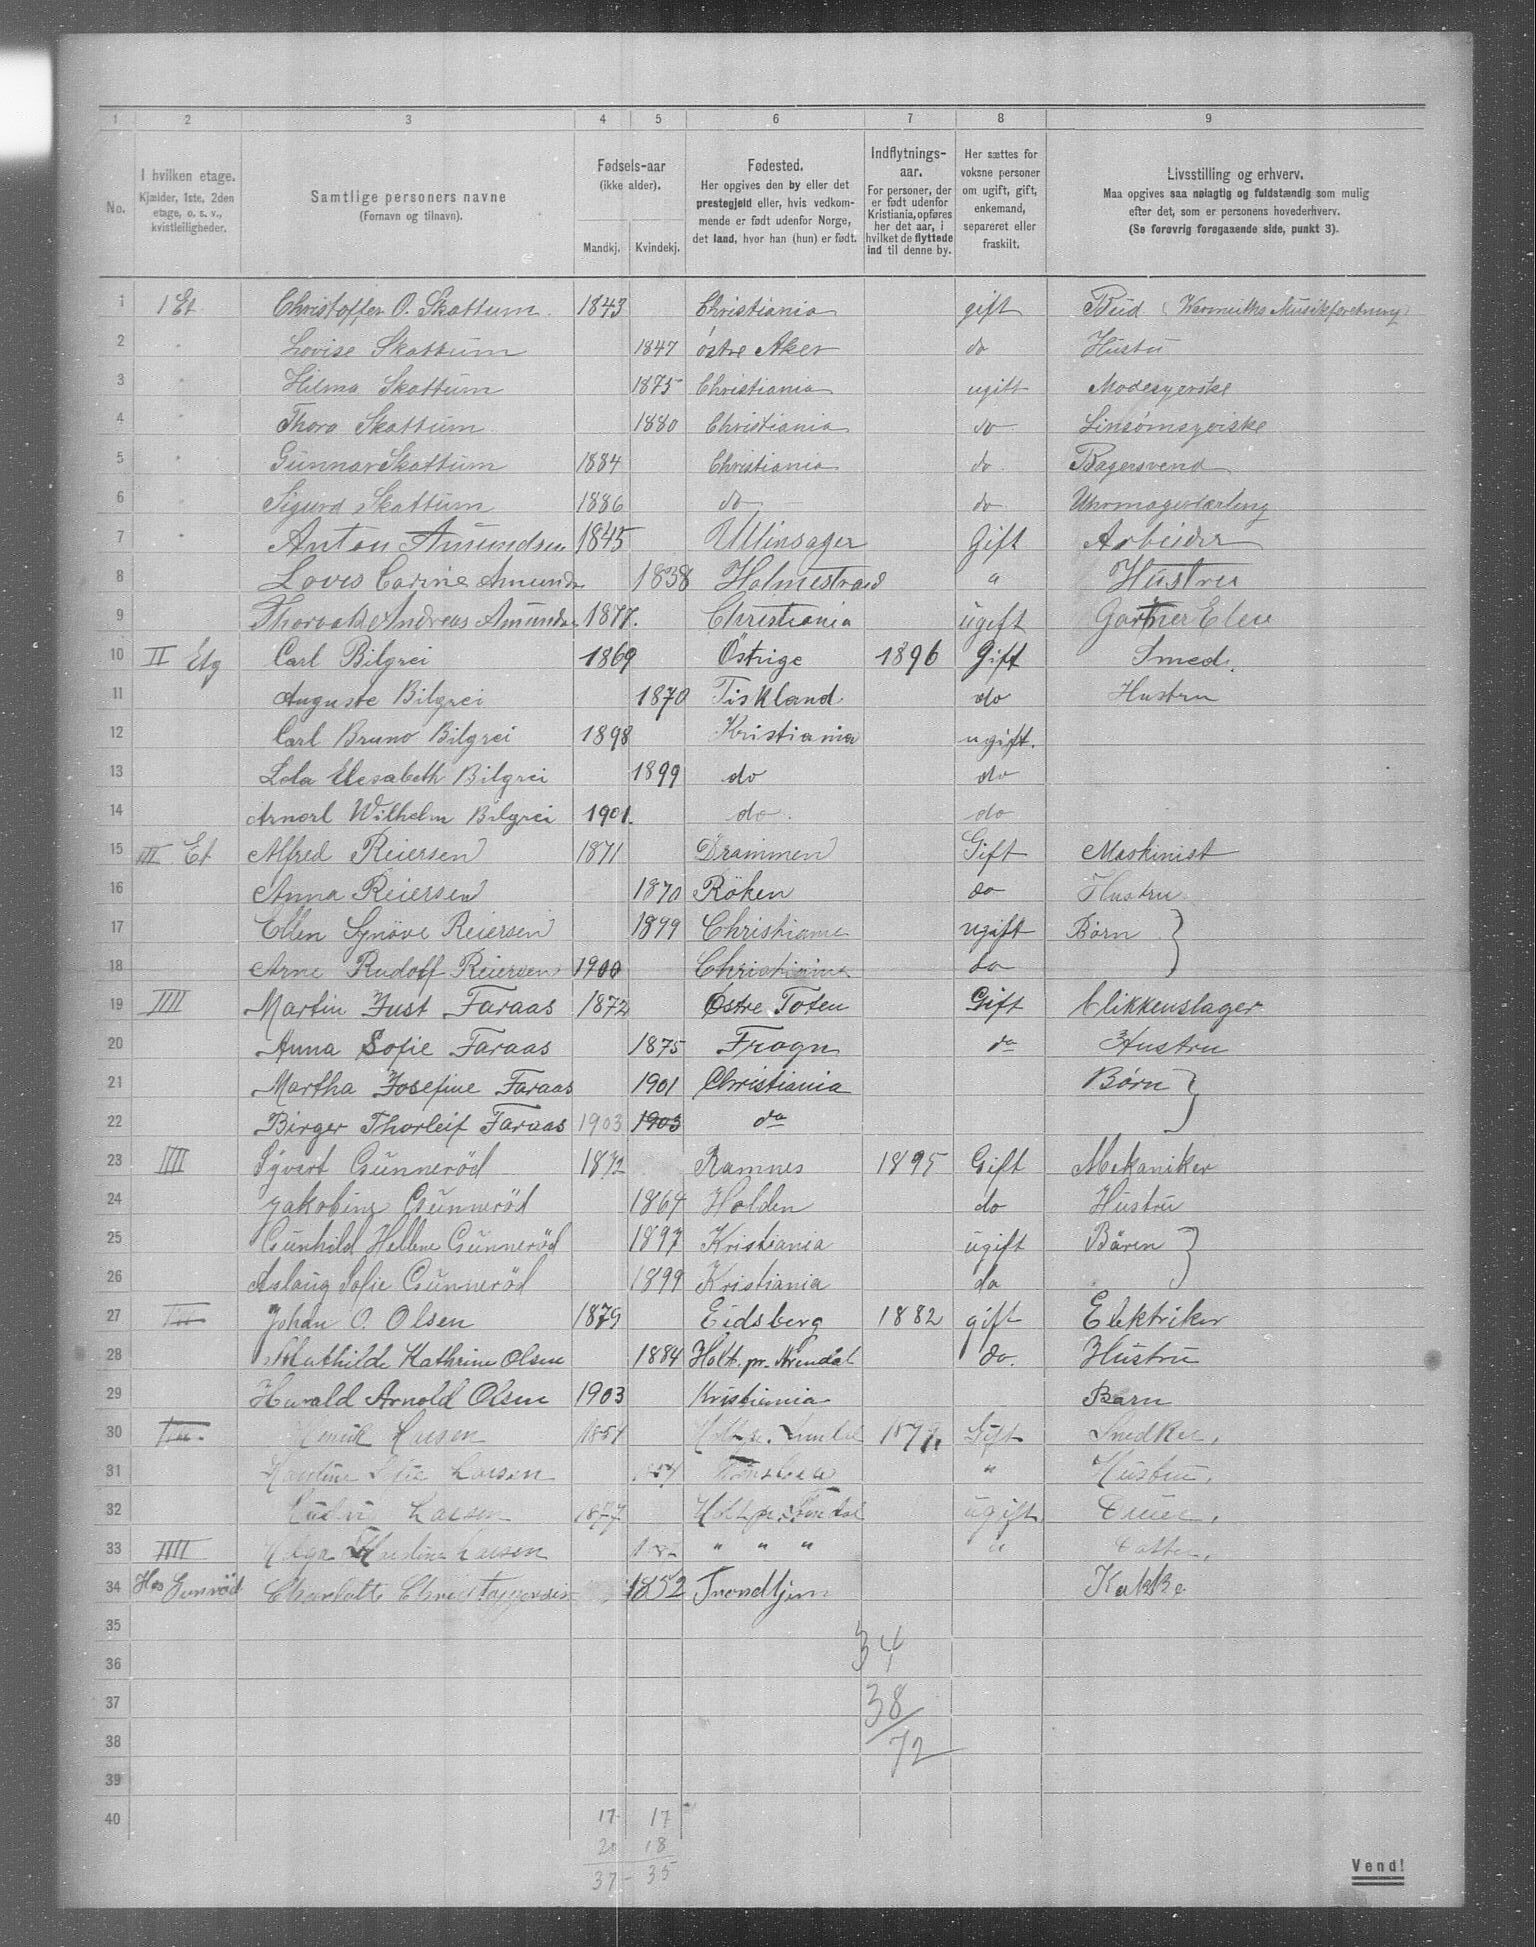 1 2 3 4 5 6 7 8 9
No.
I hvilken etage.
Kjælder, 1ste, 2den
etage, o. s. v.,
kvistleiligheder.
Samtlige personers navne
(Fornavn og tilnavn).
Fødsels-aar
(ikke alder).
Mandkj. Kvindekj.
Fødested.
Her opgives den by eller det
prestegjeld eller, hvis vedkom-
mende er født udenfor Norge,
det land, hvor han (hun) er født.
Indflytnings-
aar.
For personer, der
er født udenfor
Kristiania, opføres
her det aar, i
hvilket de flyttede
ind til denne by.
Her sættes for
voksne personer
om ugift, gift,
enkemand,
separeret eller
fraskilt.
Livsstilling og erhverv.
Maa opgives saa nøiagtig og fuldstændig som mulig
efter det, som er personens hovederhverv.
(Se forøvrig foregaaende side, punkt 3).
1 1 Et Christoffer O. Skattum 1843 Christiania gift Bud (Warmuths Musikforretning)
2 " Lovise Skattum 1847 østre Aker do Hustu
3 " Hilma Skattum 1875 Christiania ugift Modesyerske
4 " Thora Skattum 1880 Christiania do Linsømsyerske
5 " Gunnar Skattum 1884 Christiania do Bagersvend
6 " Sigurd Skattum 1886 do do Uhrmagerlærling
7 " Anton Amundsen 1845 Ullinsager Gift Arbeider
8 Lovis Carine Amunds 1838 Holmestrand " Hustru
9 Thorvald Andreas Amundsn 1877. Christiania ugift Gartner Elev
10 II Etg Carl Bilgrei 1869 Östrige 1896 Gift Smed.
11 Auguste Bilgrei 1870 Tiskland do Hustru
12 Carl Bruno Bilgrei 1898 Kristiania ugift.
13 Lola Elesabeth Bilgrei 1899 do do
14 Arnorl Wilhelm Bilgrei 1901. do. do
15 III Et Alfred Reiersen 1871 Drammen Gift Maskinist
16 Anna Reiersen 1870 Röken do Hustru
17 Ellen Synöve Reiersen 1899 Christiania ugift Børn }
18 Arne Rudolf Reiersen 1900 Christiania do
19 IIII Martin Just Faraas 1872 Østre Toten Gift Blikkenslager
20 Anna Sofie Faraas 1875 Frogn do Hustru
21 Martha Josefine Faraas 1901 Christiania Børn }
22 Birger Thorleif Faraas 1903 1903 do
23 IIII Syvert Gunneröd 1872 Ramnes 1895 Gift Mekaniker
24 Jakobine Gunneröd 1864 Holden do Hustru
25 Gunhild Hellene Gunneröd 1897 Kristiania ugift Bären }
26 Aslaug Sofie Gunneröd 1899 Kristiania do
27 Johan O. Olsen 1879 Eidsberg 1882 gift Elektriker
28 Mathilde Kathrine Olsen 1884 Holt. pr. Arendal do. Hustru
29 Harald Arnold Olsen 1903 Kristiania Barn
30 Larsen 1854 Gift Snedker,
31 Sofie Larsen " Hustru,
32 Larsen 1877 Holt pr. ugift
33 IIII Helga Larsen " " " " Datter,
34 Hos Gunröd Charlotte 1852 Trondhjem Kokke
35 34
36
37 38
38 72
39
40 17 17
20 18
37 - 35
Vend!